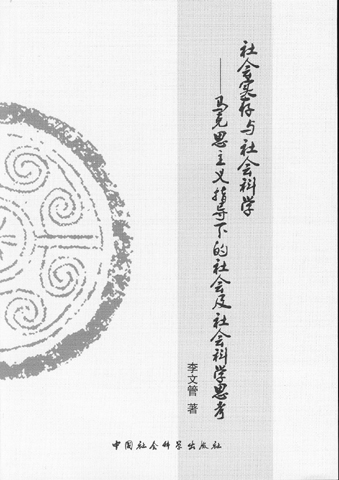 社会实存与社会科学
——马克思主义指导下的社会及社会科学思考
李文管 著
中国社会科学出版社